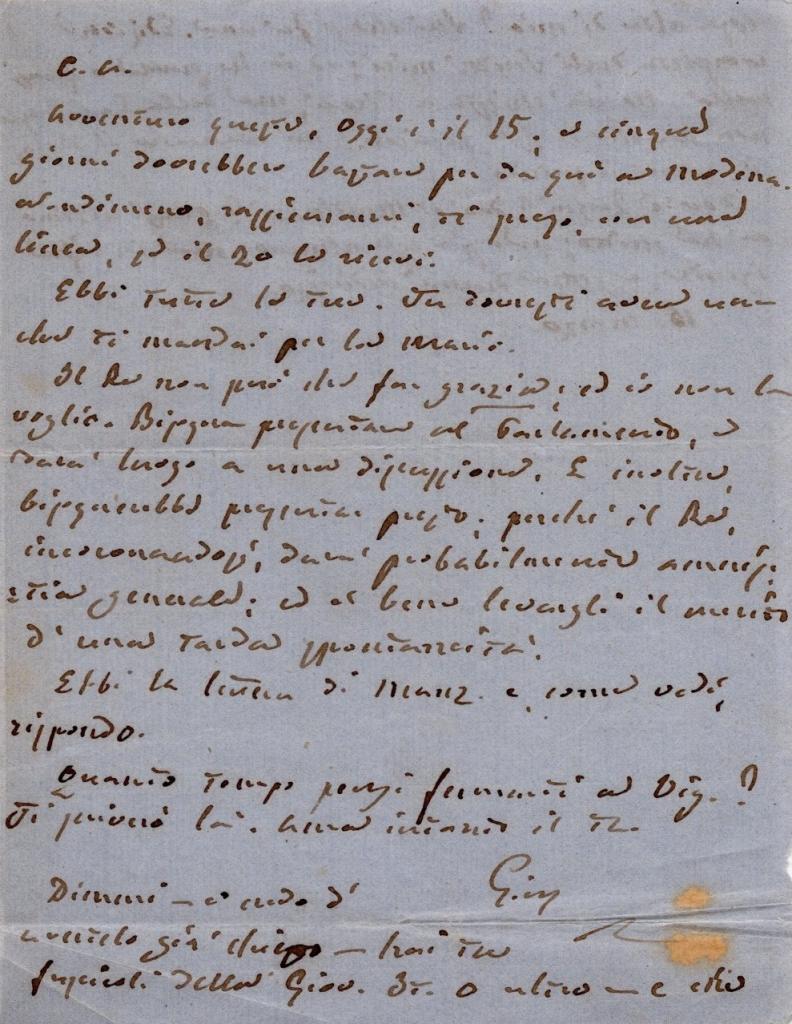 C. A.
Avventuro questo. Oggi è il 15; e cinque
giorni dovrebbero bastare per da qui a Modena.
nondimeno, rassicurami, ti prego, con una
linea, se il 20 lo ricevi.
Ebbi tutto il tuo. Tu dovresti avere
che ti mandai per la Mario.
Il Re non può che far grazia; ed io non la
voglio. Bisogna presentare al Parlamento, e
darà luogo a una discussione. E inoltre,
bisognerebbe presentar presto; perché il Re,
incoronandosi, darà probabilmente amni-
stia generale; ed è bene levargli il merito
d'una tarda spontaneità.
Ebbi la lettera di Manz. e, come vedi,
rispondo.
Quanto tempo pensi fermarti a Vig.?
Ti scriverò là. Ama intanto il tuo
Gius
Dimmi — e credo d'
avertelo già chiesto — hai tu
fascicoli della Giov. It. o altro — e che